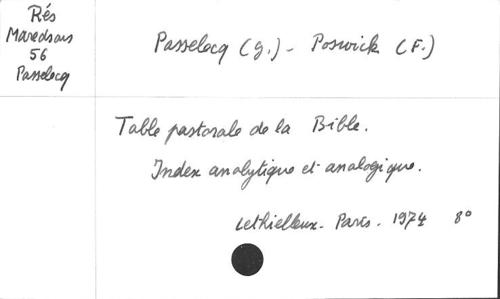 Rés
Maredsous
56
Passelecq
Passelecq (G.) - Poswick (F.)
Table pastorale de la Bible.
Index analytique et analogique.
Lethielleux. Paris. 1974 8°